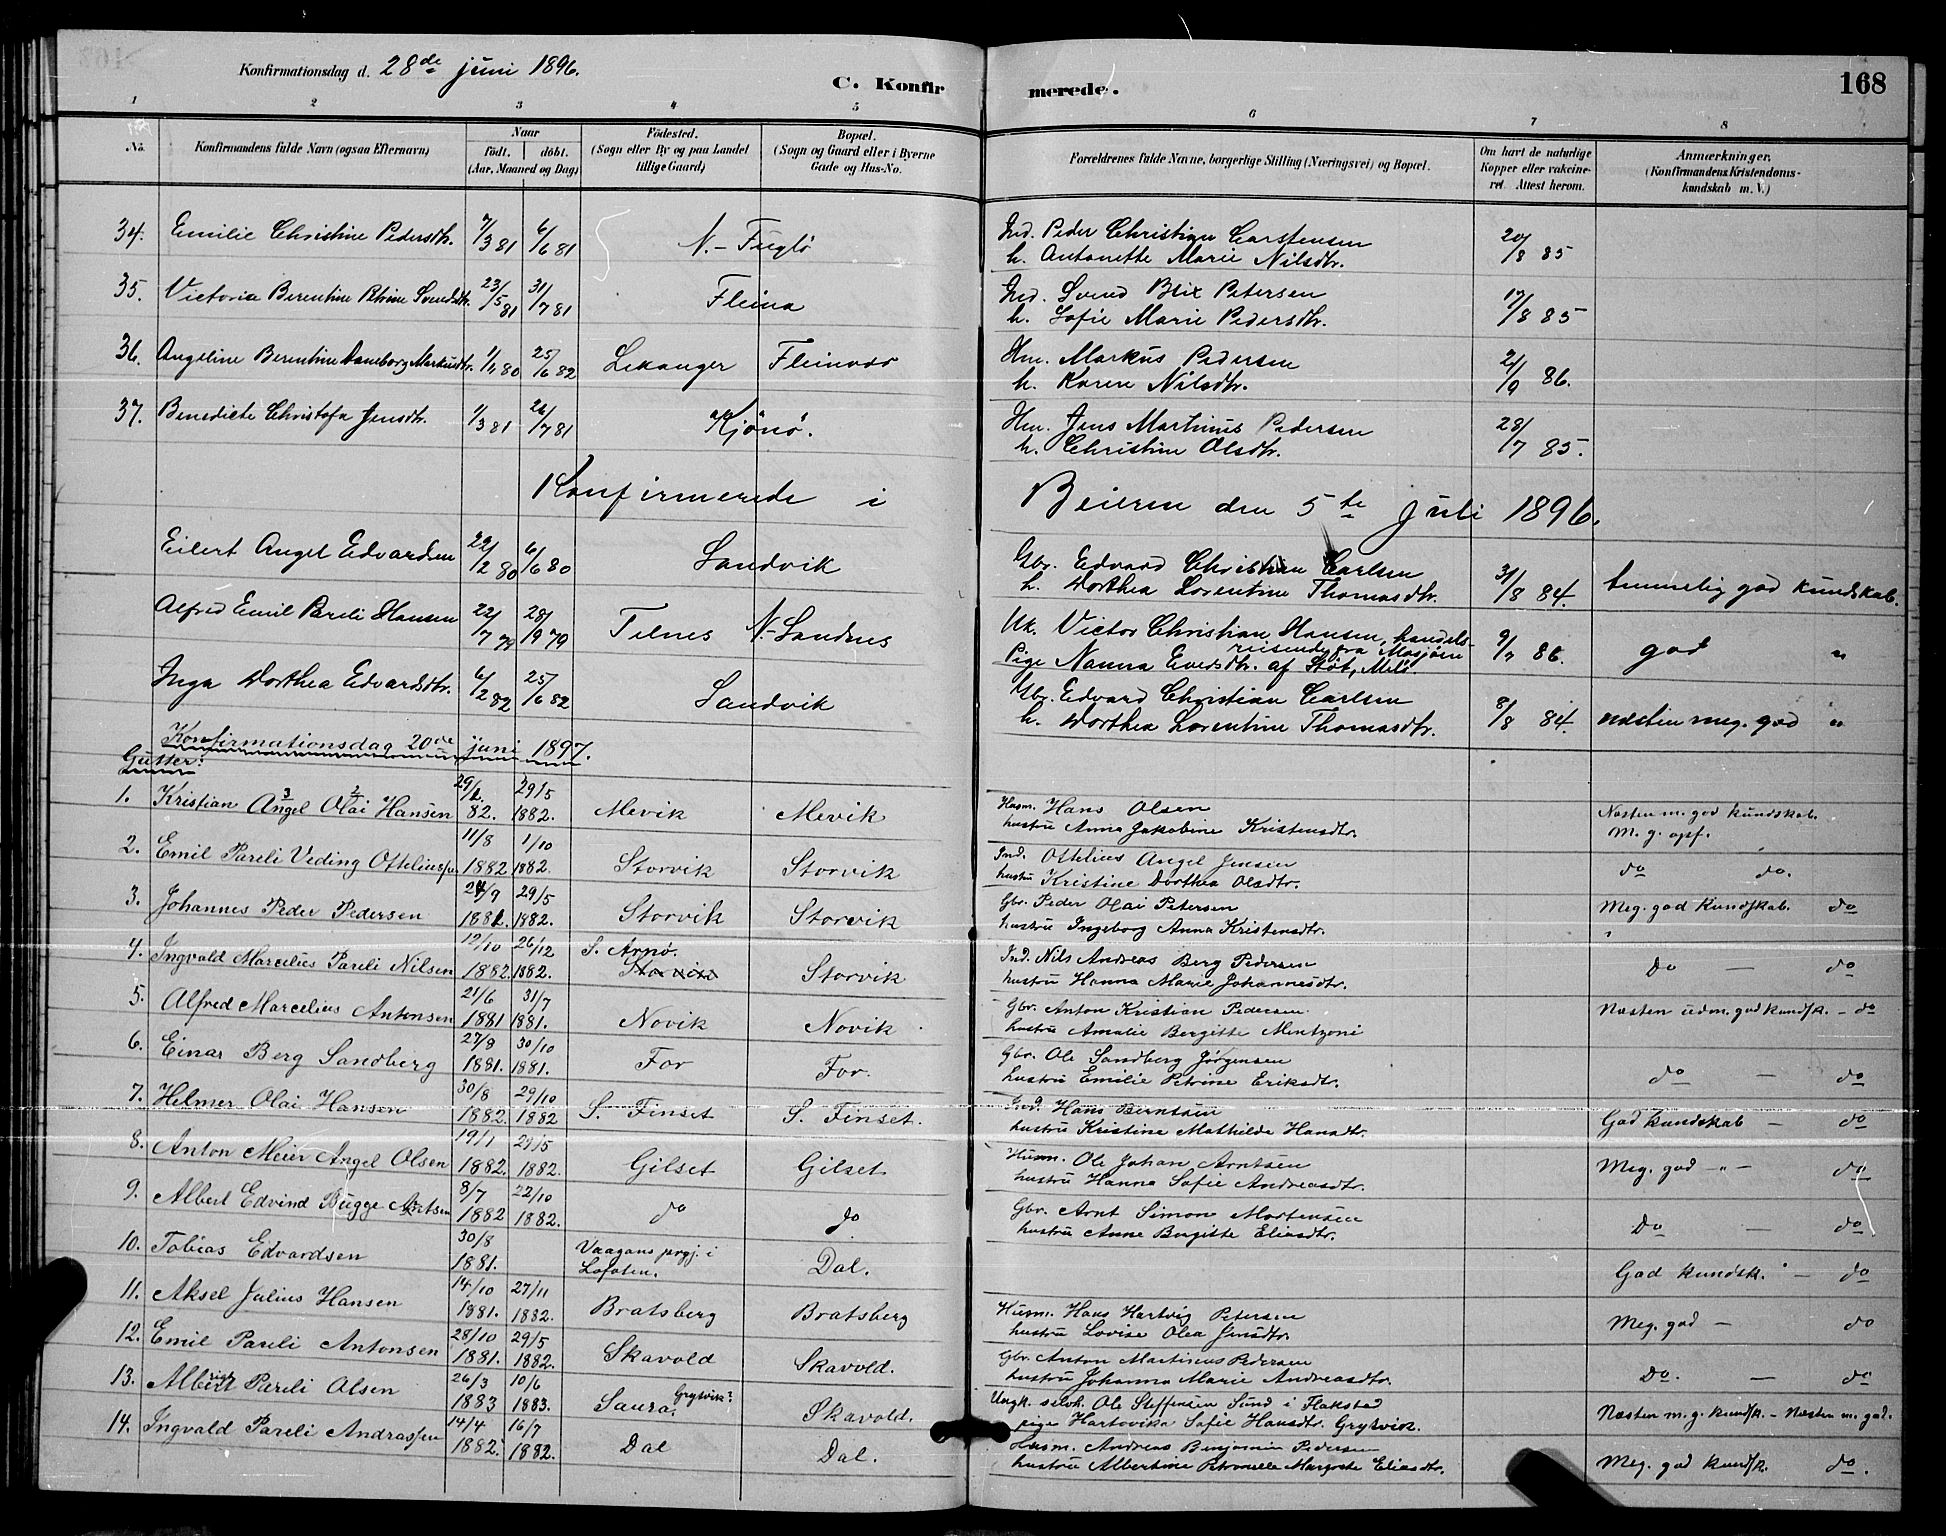 Konfirmationsdag d. 28de juni 1896.
C. Konfirmerede.
168
1 2 3 4 5 6 7 8
No.
Konfirmandens fulde Navn (ogsaa Efternavn)
Naar
født. døbt.
(Aar, Maaned og Dag)
Fødested.
(Sogn eller By og paa Landet
tillige Gaard)
Bopæl.
(Sogn og Gaard eller i Byerne
Gade og Hus-No.
Forældrenes fulde Navne, borgerlige Stilling (Næringsvei) og Bopæl.
Om havt de naturlige
Kopper eller vakcine-
ret. Attest herom.
Anmærkninger.
(Konfirmandens Kristendoms-
kundskab m. V.)
34. Emilie Christine Pedersdtr. 7/3 81 6/6 81 N.-Fuglø Ind. Peder Christian Carstensen 20/8 85
h. Antonette Marie Nilsdtr.
35. Victoria Berentine Petrine Svendsdtr. 23/5 81 31/7 81 Fleina Ind. Svend Blix Petersen 17/8 85
h. Sofie Marie Pedersdtr.
36. Angeline Berentine Daneborg Markusdtr. 1/1 80 25/6 82 Lekanger Fleinvær Hm. Markus Pedersen 21/9 86.
h. Karen Nilsdtr.
37. Benedicte Christofa Jensdtr. 1/3 81 26/7 81 Kjønø. Hm. Jens Martinus Pedersen 28/7 85.
h. Christine Olsdtr.
Konfirmerede i Beieren den 5te Juli 1896.
Eilert Angel Edvardsen 29/2 80 6/6 80 Sandvik Gbr. Edvard Christian Carlsen 31/8 84. temmelig god kundskab.
h. Dorthea Lorentine Thomasdtr.
Alfred Emil Pareli Hansen 22/7 79 28/9 79 Telnes N-Sandnes Uk. Victor Christian Hansen, handels- 9/7 86. god "
reisende fra Mosjøen
Pige Nanna Evensdtr. af Støt, Melø.
Inga Dorthea Edvardsdtr. 6/2 82 25/6 82 Sandvik Gbr. Edvard Christian Carlsen 8/8 84. næsten meg. god "
h. Dorthea Lorentine Thomasdtr.
Konfirmationsdag 20de juni 1897.
Gutter:
1. Kristian Angel Olai Hansen 29/1 82. 29/5 1882. Mevik Mevik Husm. Hans Olsen Næsten m. god kundskab.
hustru Anna Jakobine Kristensdtr. M. g. opf.
2. Emil Pareli Veding Otteliussen 11/8 1882 1/10 1882. Storvik Storvik Ind. Ottelius Angel Jensen do do.
hustru Kristine Dorthea Olsdtr.
3. Johannes Peder Pedersen 24/9 1881. 29/5 1882. Storvik Storvik Gbr. Peder Olai Petersen Meg. god kundskab. do
hustru Ingeborg Anna Kristensdtr.
4. Ingvald Marcelius Pareli Nilsen 12/10 1882. 26/12 1882. S. Arnø. Storvik Storvik Ind. Nils Andreas Berg Pedersen Do — do
hustru Hanna Marie Johannesdtr.
5. Alfred Marcelius Antonsen 21/6 1881 31/7 1881. Novik Novik Gbr. Anton Kristian Pedersen Næsten udm. god kundsk. - do
hustru Amalie Bergitte Mentzoni
6. Einar Berg Sandberg 27/8 1881. 30/10 1881. For For. Gbr. Ole Sandberg Jørgensen do — do
hustru Emilie Petrine Eriksdtr.
7. Helmer Olai Hansen 30/8 1882. 29/10 1882 S. Finset S. Finset. Ind. Hans Berntsen God kundskab — do
hustru Kristine Mathilde Hansdtr.
8. Anton Meier Angel Olsen 19/1 1882. 29/5 1882. Gilset Gilset Husm. Ole Johan Arntsen Meg. god -"- do
hustru Hanna Sofie Andreasdtr.
9. Albert Edvind Bugge Arntsen 8/7 1882 22/10 1882. do do Gbr. Arnt Simon Mortensen Do — do
hustru Anne Bergitte Eliasdtr.
10. Tobias Edvardsen 30/8 1881. Vaagans prgj. i Lofoten. Dal. God kundsk. — do
11. Aksel Julius Hansen 14/10 1881. 27/11 1882. Bratsberg Bratsberg Husm. Hans Hartvig Petersen Meg. god — do
hustru Lovise Olea Jensdtr.
12. Emil Pareli Antonsen 28/10 1881. 29/5 1882. Skavold Skavold. Gbr. Anton Martinus Pedersen Do. — do
hustru Johanna Marie Andreasdtr.
13. Albert Pareli Olsen 26/3 1883 10/6 1883. Saura. Grytvik? Skavold. Ungk. selvh. Ole Steffensen Sund i Flakstad Næsten m. g. kundsk. - Næsten m. god.
pige Hartvika Sofie Hansdtr. Grytvik.
14. Ingvald Pareli Andrassen 14/4 1882. 16/7 1882. Dal Dal. Husm. Andreas Benjamin Pedersen Meg. god kundsk. do.
hustru Albertine Petronelle Margrete Eliasdtr.